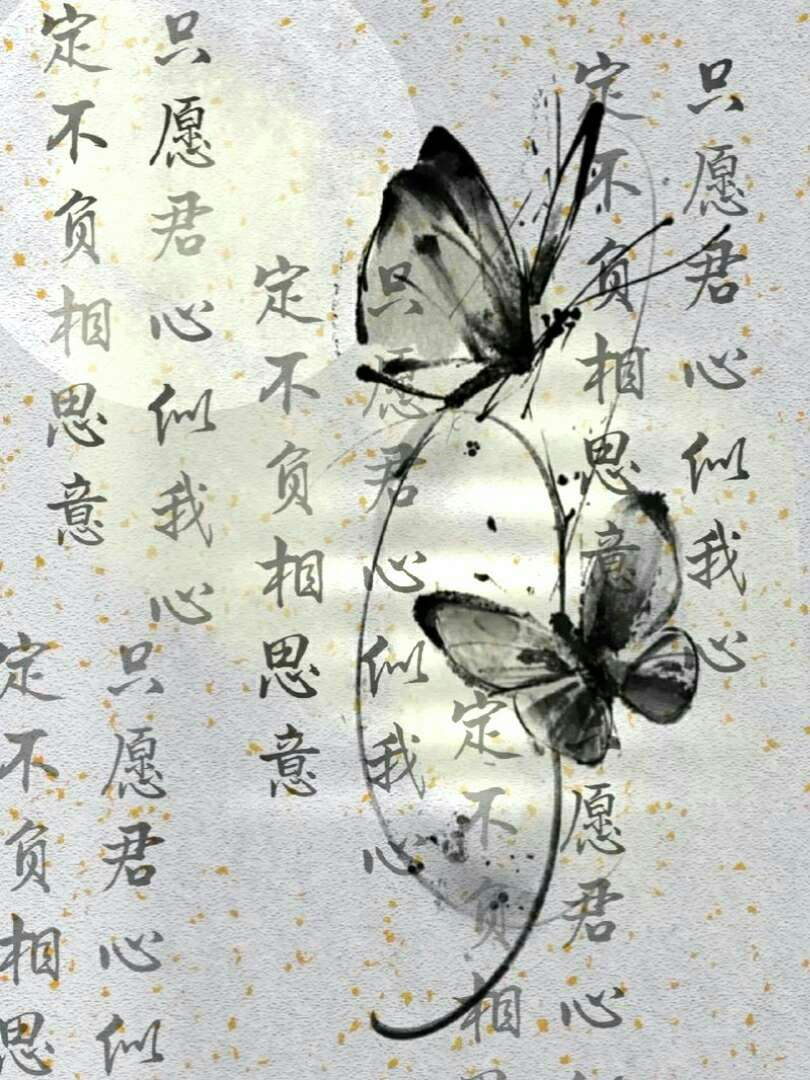 只愿君心似我心
定不负相思意
只愿君心似我心
定不负相思意
只愿君心似我心
定不负相思意
愿君心
定不负相
只愿君心似
定不负相思